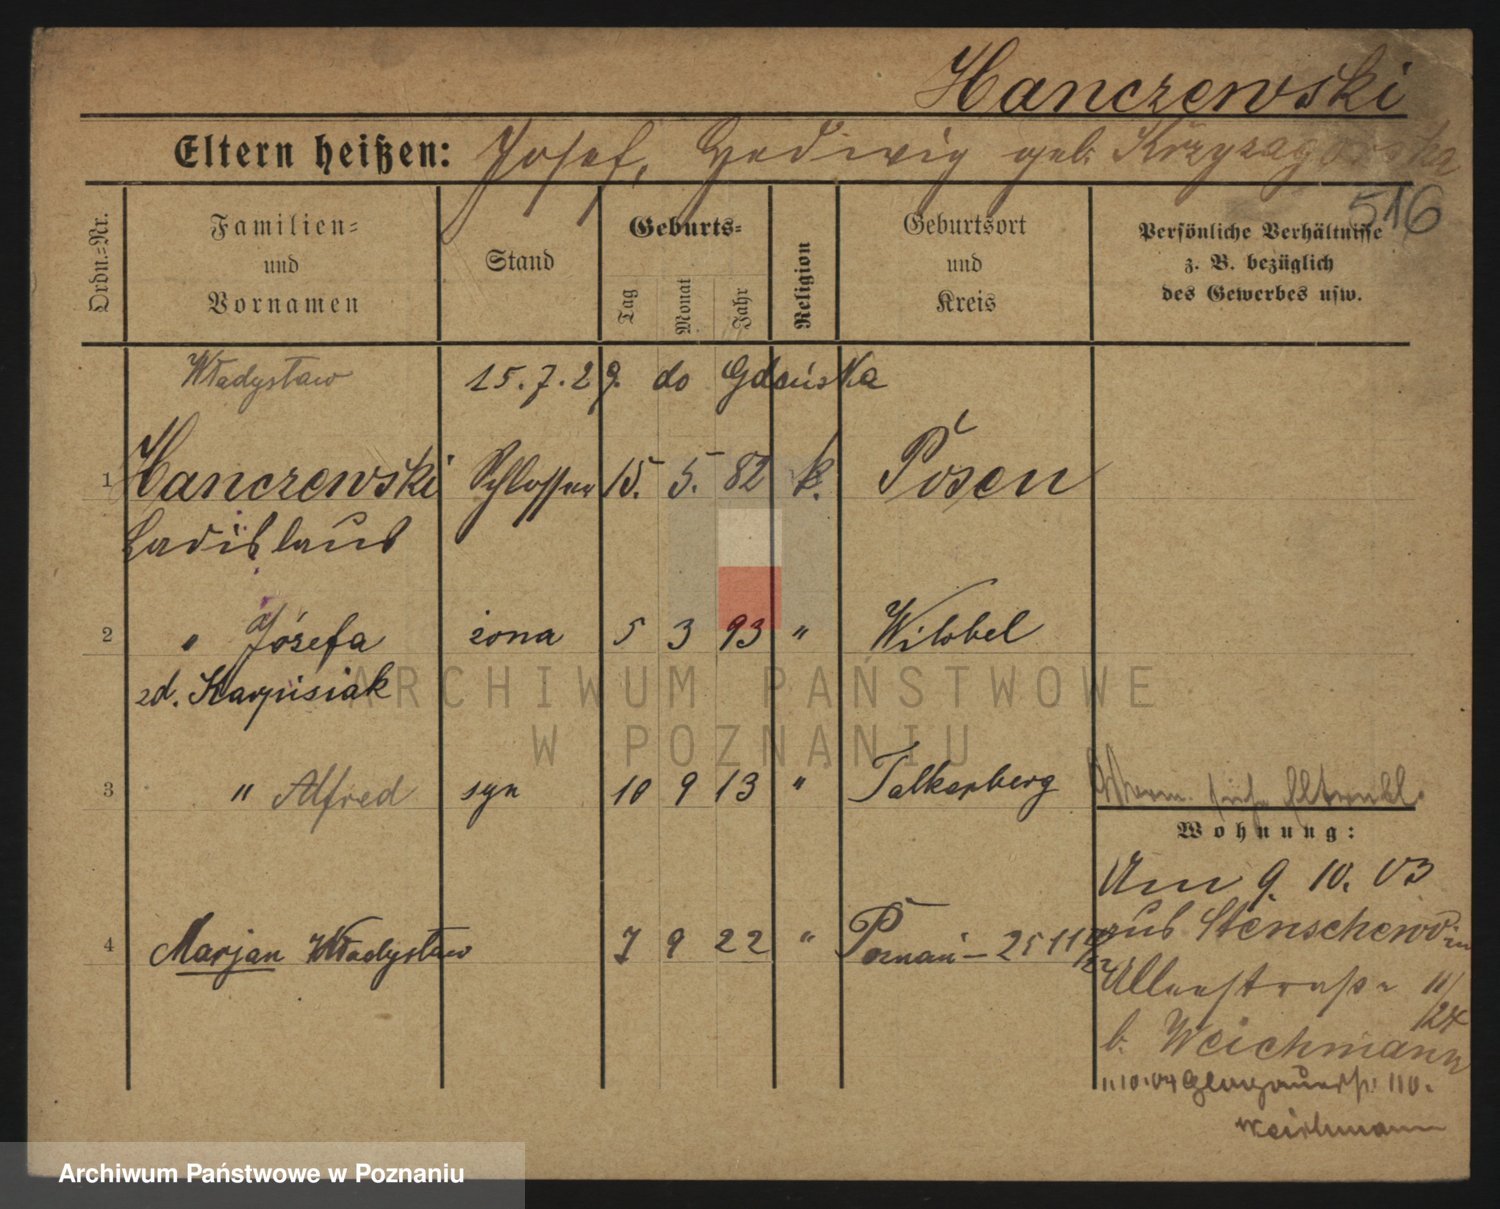 Hanczewski
Eltern heißen: Josef, Hedwig geb. Krzyzagorska
516
Ordn.-Nr.
Familien-
und
Vornamen
Stand
Geburts-
Tag
Monat
Jahr
Religion
Geburtsort
und
Kreis
Persönliche Verhältnisse
z. B. bezüglich
des Gewerbes usw.
Władysław 15.7.29. do Gdańska
1 Hanczewski Schlosser 15. 5. 82 k. Posen
Ladislaus
2 " Józefa żona 5 3 93 " Wilobel
zd. Karpisiak
ARCHIWUM PAŃSTWOWE
W POZNANIU
3 " Alfred syn 10 9 13 " Falkenberg
4 Marjan Władysław 7 9 22 " Poznań – 25 11
Wohnung:
Am 9. 10. 03
aus Stenschewo in
11/
124
b. Weichmann
1.10.04 Glogauerstr. 110.
Weichmann
Archiwum Państwowe w Poznaniu